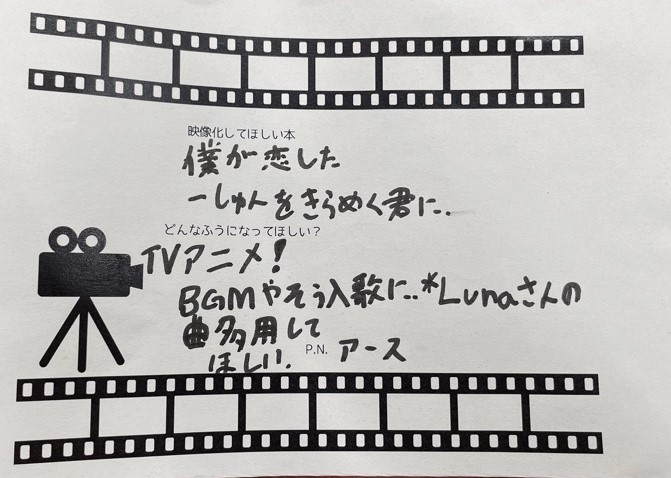 映像化してほしい本
僕が恋した
一しゅんをきらめく君に..
どんなふうになってほしい？
TVアニメ！
BGMやそう入歌に..*Lunaさんの
曲多用して
ほしい.
P.N. アース